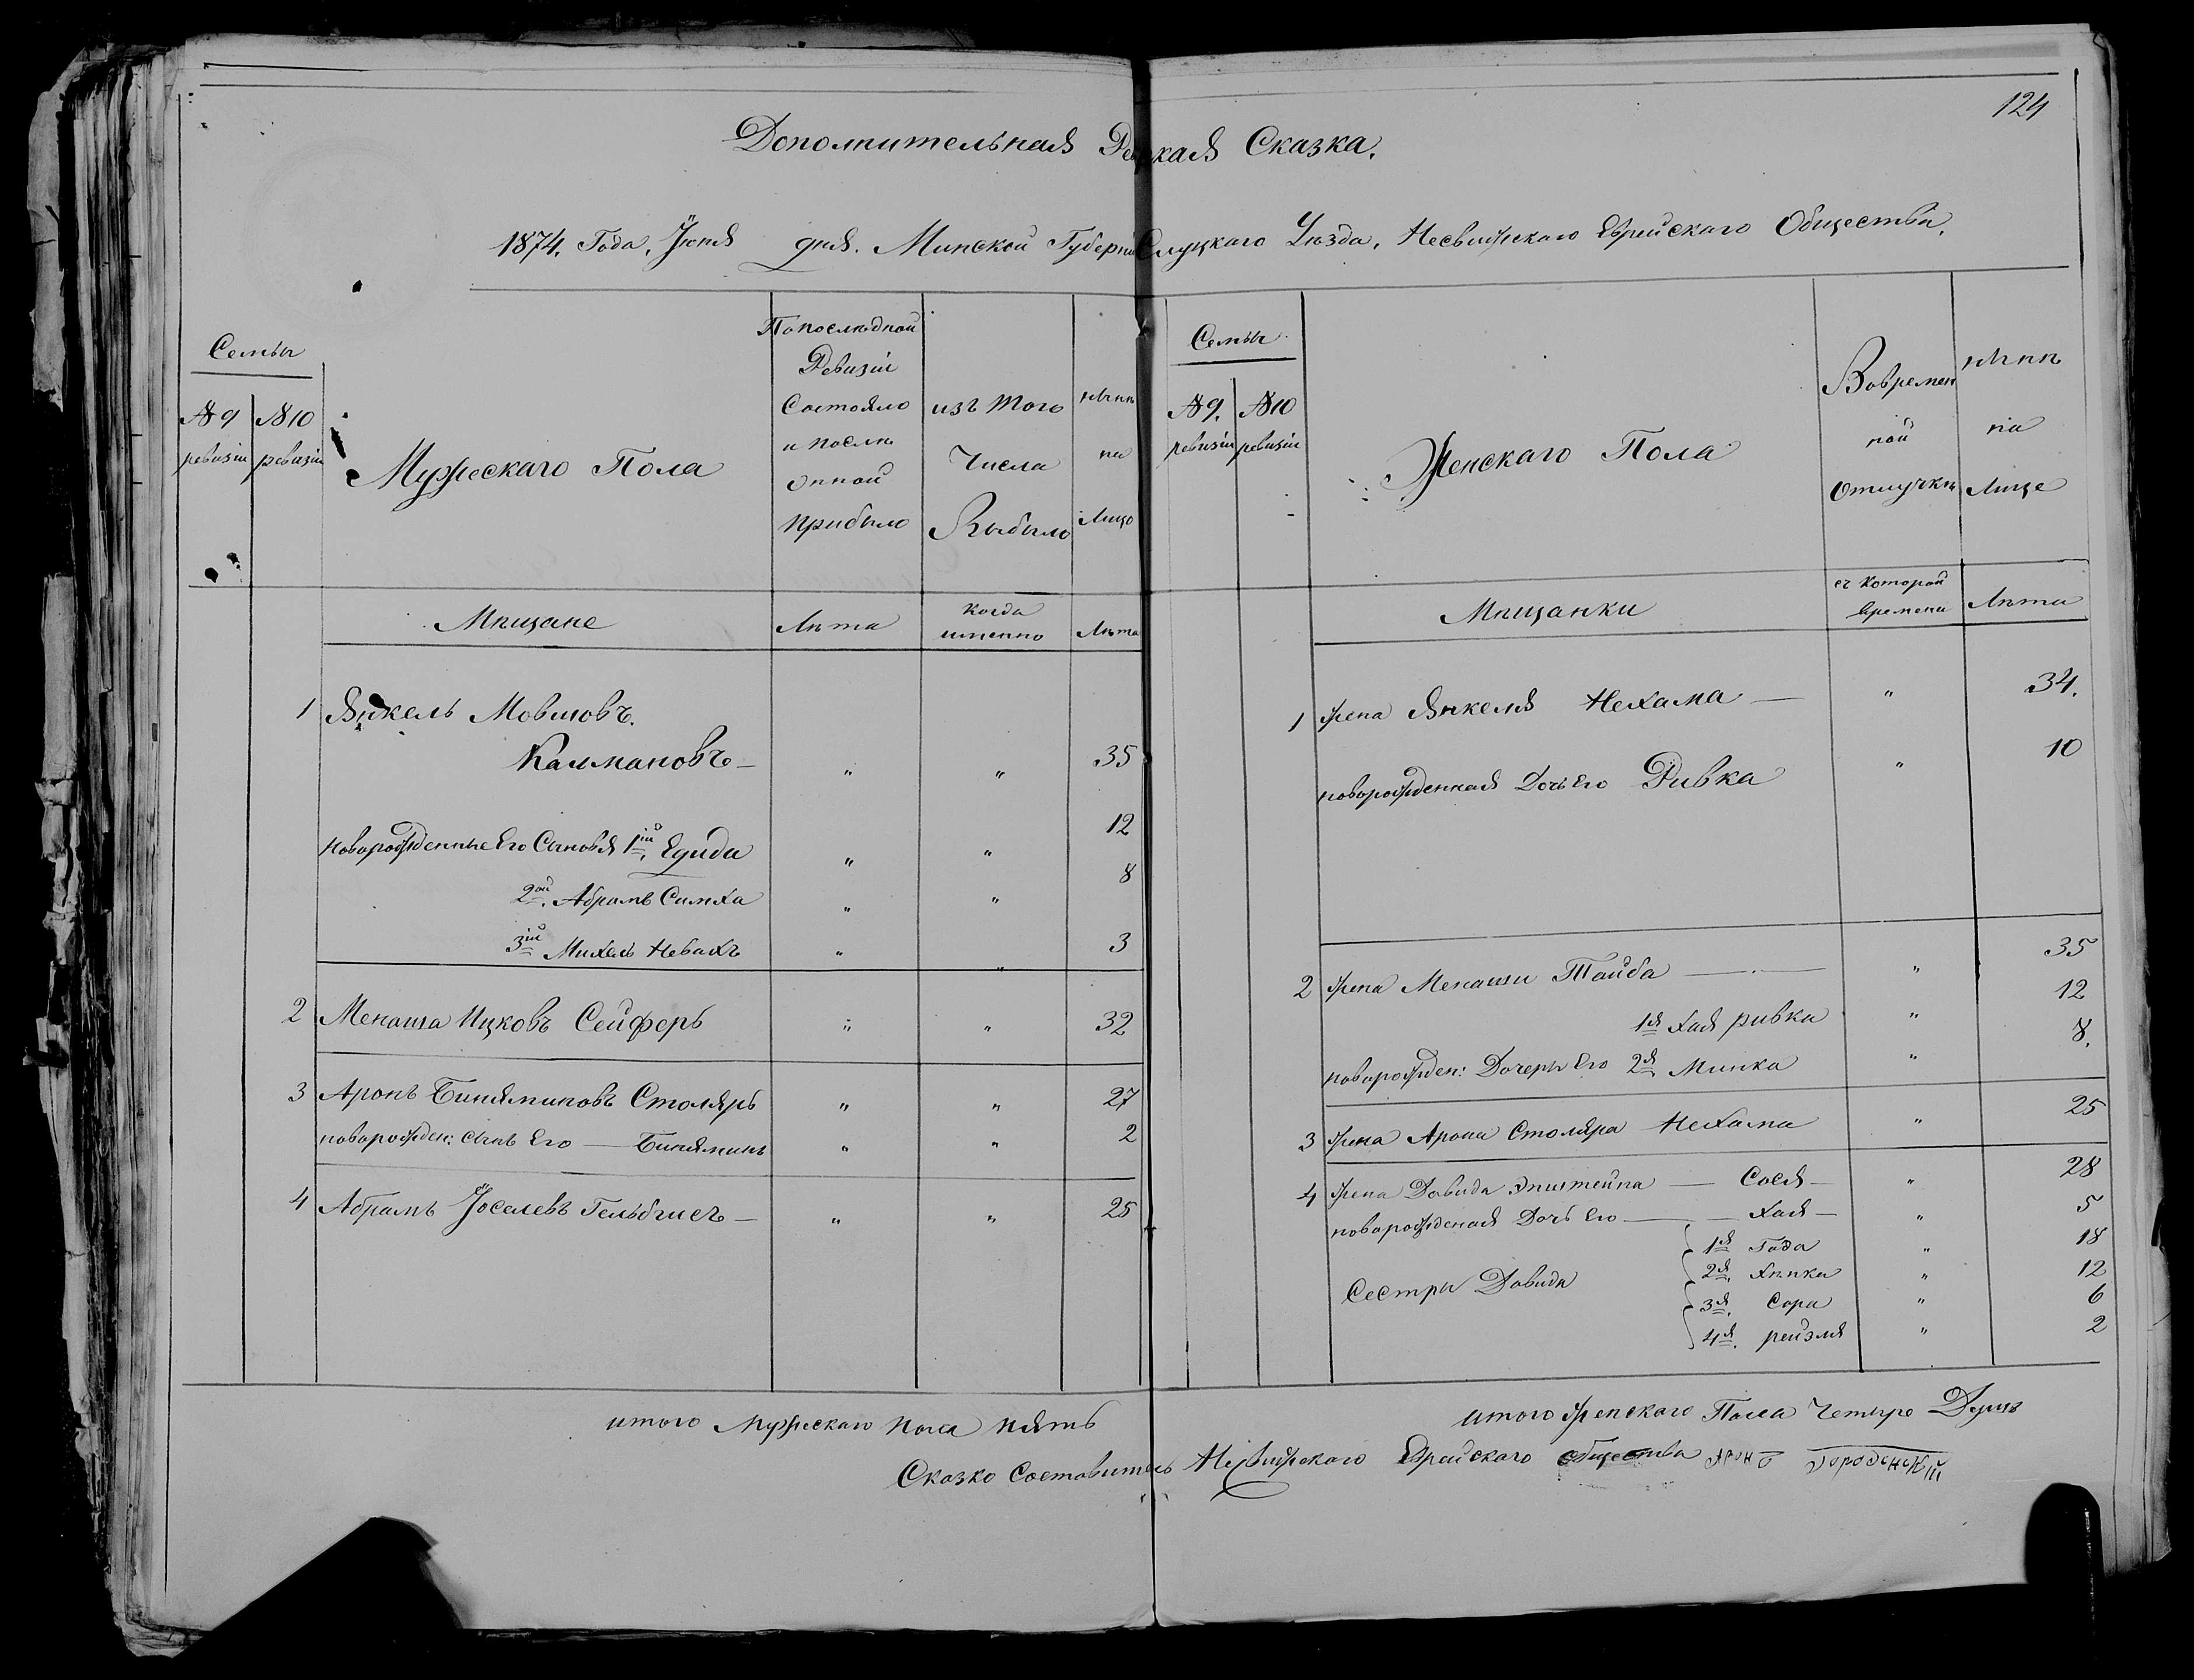 124
Дополнительная Ревская Сказка.
1874. Года, Іюня дня. Минской Губерніи Слуцкаго Уѣзда, Несвижскаго Еврейскаго Общества.
Семьи
№ 9 ревизіи
№ 10 ревизіи
Мужескаго Пола
По послѣдной
Ревизіи
Состояло
и послѣ
Онной
прибыло
изъ того
Числа
Выбыло
нынѣ
на
Лицо
Мѣщане
Лѣта
когда
именно
Лѣта
1 Янкель Мовшовъ.
Калмановъ — " " 35
новорожденные Его Сыновья 1ій Еуида " " 12
2ой. Абрамъ Симха " " 8
3ій Михель Невахъ " " 3
2 Менаша Ицковъ Сейферъ " " 32
3 Аронъ Биняминовъ Столяръ " " 27
новорожден: сынъ Его — Биняминъ " " 2
4 Абрамъ Іоселевъ Гельбгисъ — " " 25
итого мужескаго пола пять
Семьи
№ 9. ревизіи
№ 10 ревизіи
Женскаго Пола
Вовремен
ной
Отлучкѣ
нынѣ
на
Лице
Мѣщанки
съ которой
времени
Лѣта
1 жена Янкеля Нехама — " 34.
новорожденная Дочь Его Ривка " 10
2 жена Менаши Тайба — " 35
1я Хая ривка " 12
новорожден: Дочеры Его 2я Минка " 8.
3 жена Арона Столяра Нехама " 25
4 жена Давида Эпштейна — Сося — " 28
новорожденая Дочь Его — Хая — " 5
1я Года " 18
2я. Хѣнка " 12
Сестры Давида
3я. Сора " 6
4я. рейзля " 2
итого женскаго Пола Четыре Душъ
Сказко Составитель Несвижскаго Еврейскаго общества Аронъ Городенскій